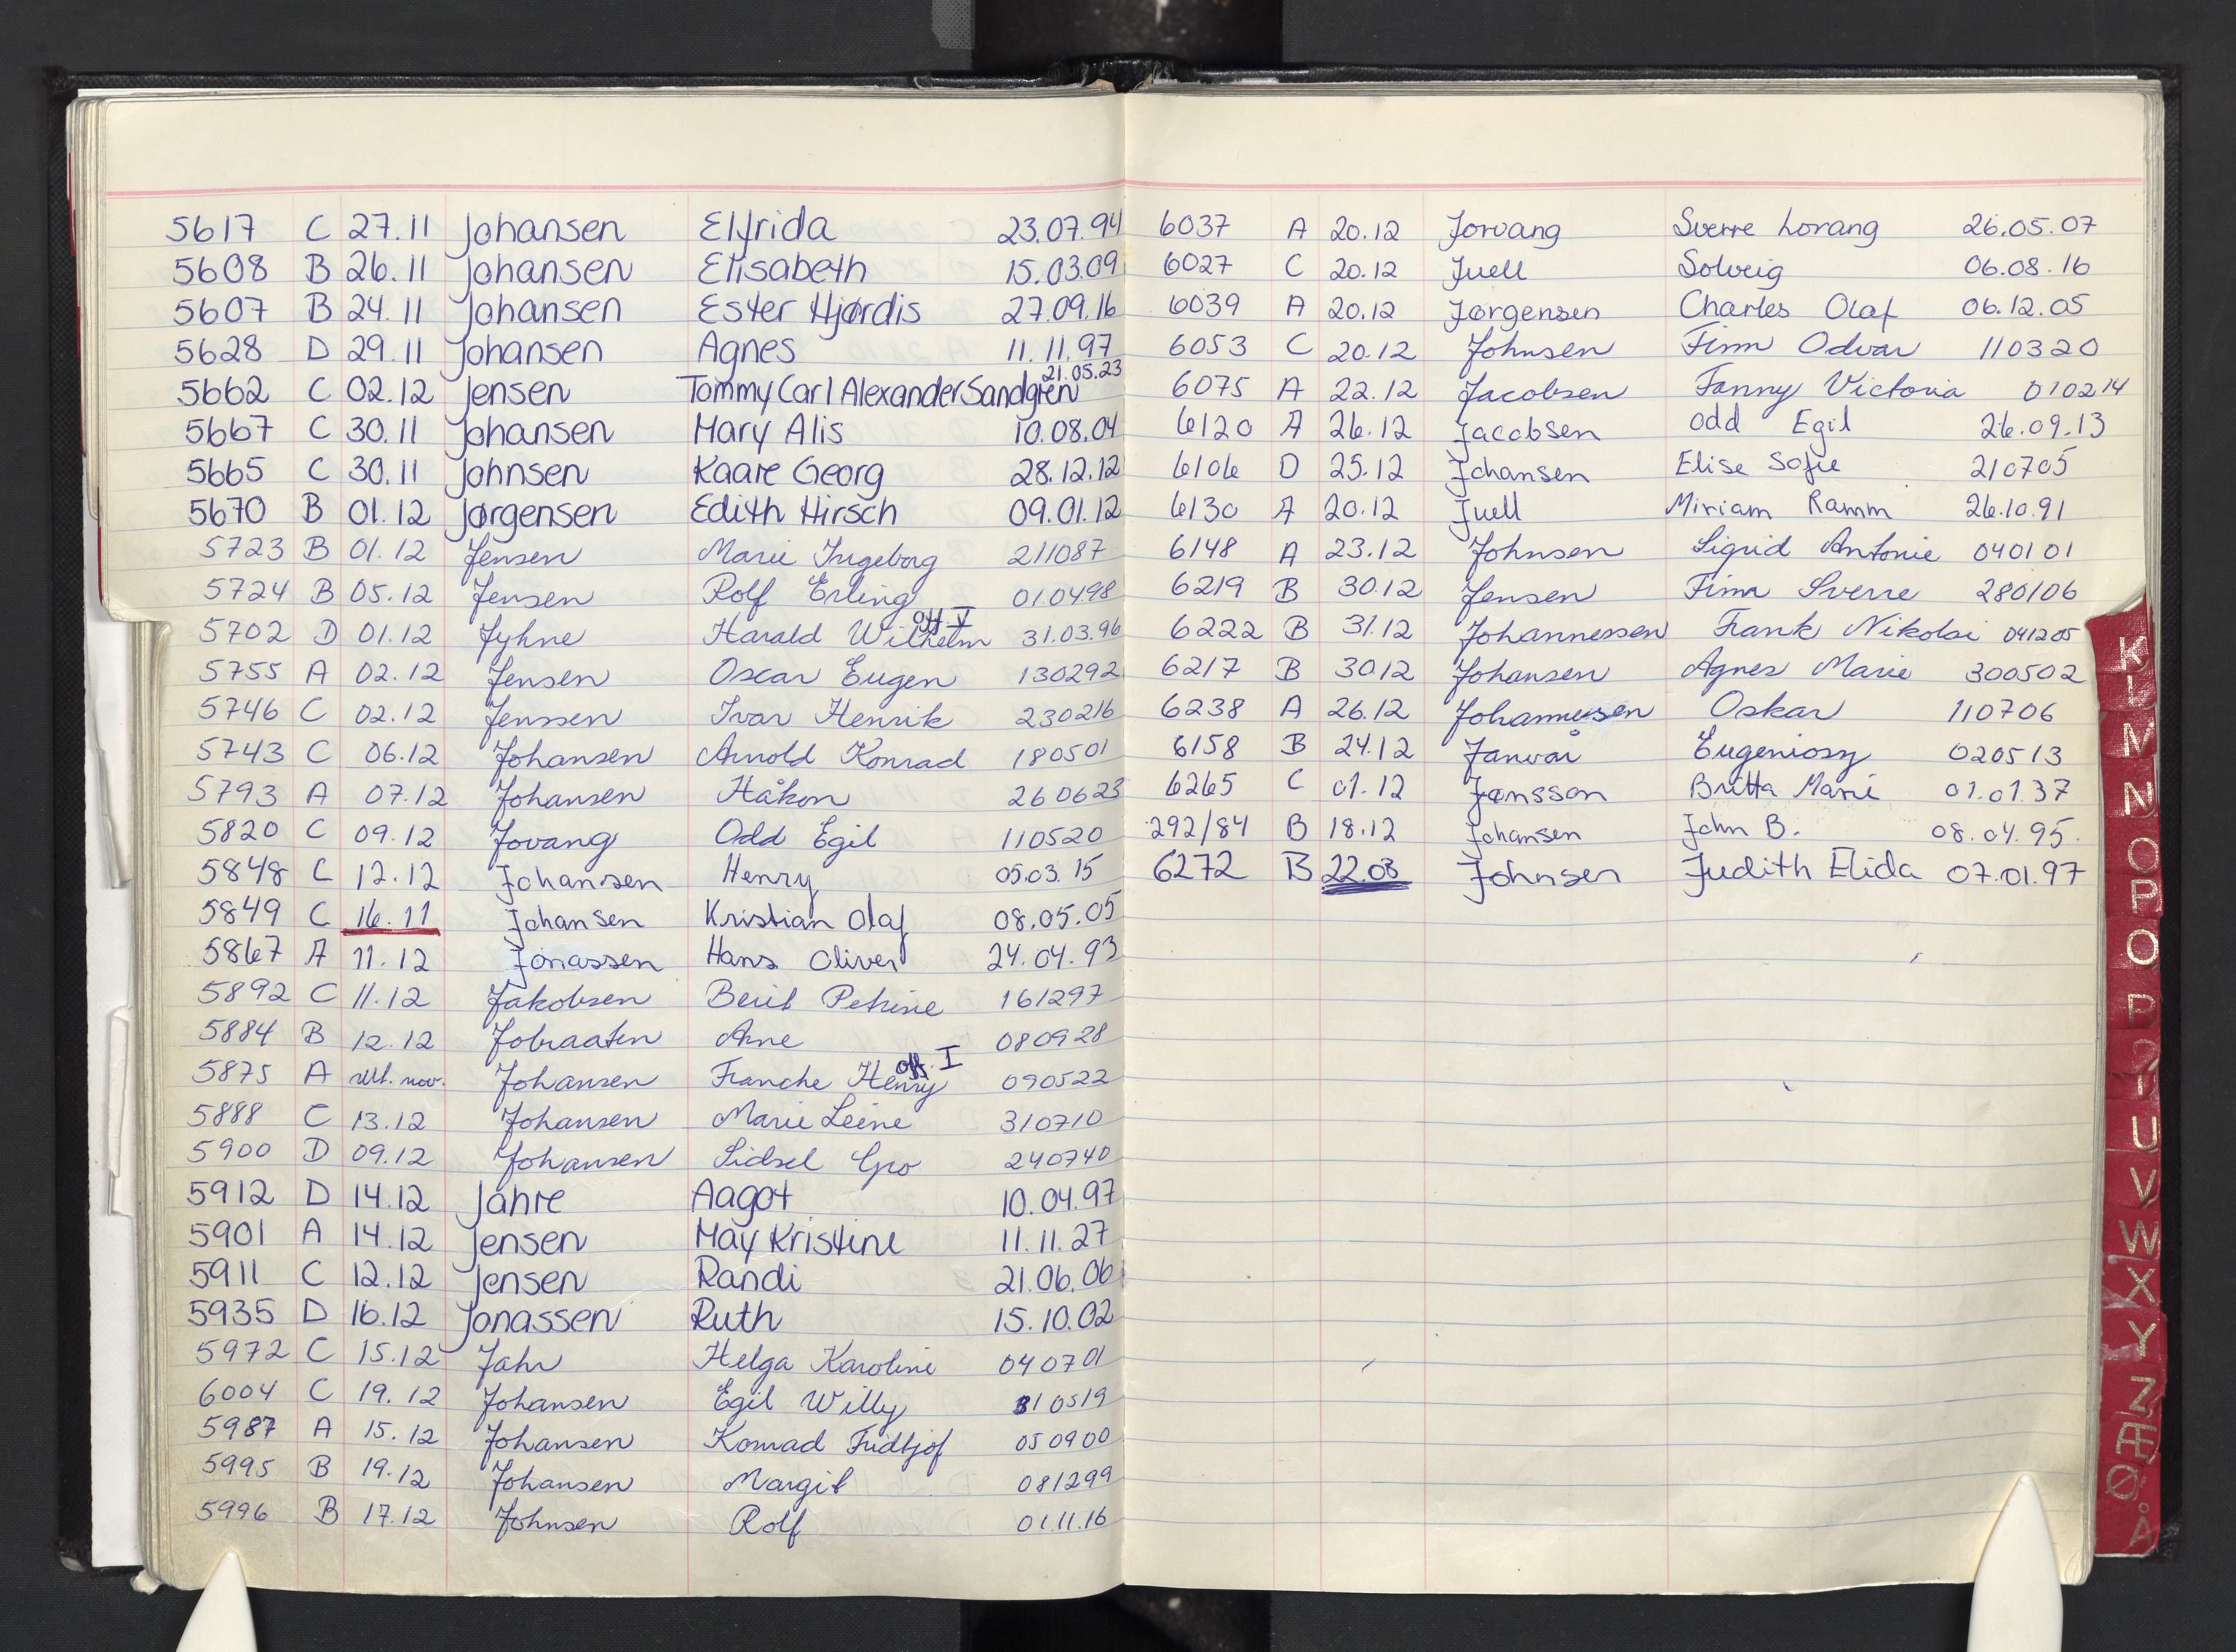 5617 C 27.11 Johansen Elfrida 23.07.94
5608 B 26.11 Johansen Elisabeth 15.03.09
5607 B 24.11 Johansen Ester Hjørdis 27.09.16
5628 D 29.11 Johansen Agnes 11.11.97
5662 C 02.12 Jensen Tommy Carl Alexander Sandgren 21.05.23
5667 C 30.11 Johansen Mary Alis 10.08.04
5665 C 30.11 Johnsen Kaare Georg 28.12.12
5670 B 01.12 Jørgensen Edith Hirsch 09.01.12
5723 B 01.12 Jensen Marie Ingeborg 211087
5724 B 05.12 Jensen Rolf Erling 01.0498
5702 D 01.12 Jyhne Harald Wilhelm off. V 31.03.96
5755 A 02.12 Jensen Oscar Eugen 130292
5746 C 02.12 Jenssen Ivar Henrik 230216
5743 C 06.12 Johansen Arnold Konrad 180501
5793 A 07.12 Johansen Håkon 260623
5820 C 09.12 Jovang Odd Egil 110520
5848 C 12.12 Johansen Henry 05.03.15
5849 C 16.11 Johansen Kristian Olaf 08.05.05
5867 A 11.12 Jonassen Hans Oliver 24.04.93
5892 C 11.12 Jakobsen Berit Petrine 161297
5884 B 12.12 Jobraaten Arne 080928
5875 A utl. nov. Johansen Franche Henry off. I 090522
5888 C 13.12 Johansen Marie Leine 310710
5900 D 09.12 Johansen Sidsel Gro 240740
5912 D 14.12 Jahre Aagot 10.04.97
5901 A 14.12 Jensen May Kristine 11.11.27
5911 C 12.12 Jensen Randi 21.06.06
5935 D 16.12 Jonassen Ruth 15.10.02
5972 C 15.12 Jahr Helga Karoline 040701
6004 C 19.12 Johansen Egil Willy 310519
5987 A 15.12 Johansen Konrad Fridtjof 050900
5995 B 19.12 Johansen Margit 081299
5996 B 17.12 Johnsen Rolf 01.11.16
6037 A 20.12 Jorvang Sverre Lorang 26.05.07
6027 C 20.12 Juell Solveig 06.08.16
6039 A 20.12 Jørgensen Charles Olaf 06.12.05
6053 C 20.12 Johnsen Finn Odvar 110320
6075 A 22.12 Jacobsen Fanny Victoria 010214
6120 A 26.12 Jacobsen Odd Egil 26.09.13
6106 D 25.12 Johansen Elise Sofie 210705
6130 A 20.12 Juell Miriam Ramm 26.10.91
6148 A 23.12 Johnsen Sigrid Antonie 040101
6219 B 30.12 Jensen Finn Sverre 280106
6222 B 31.12 Johannessen Frank Nikolai 041205
6217 B 30.12 Johansen Agnes Marie 300502
6238 A 26.12 Johannesen Oskar 110706
6158 B 24.12 Janvår Eugeniosy 020513
6265 C 01.12 Jansson Britta Marie 01.01.37
292/84 B 18.12 Johansen John B. 08.04.95.
6272 B 22.03 Johnsen Judith Elida 07.01.97
K
L
M
N
O
P
Q
U
V
W
X
Y
Z
Æ
Ø
Å